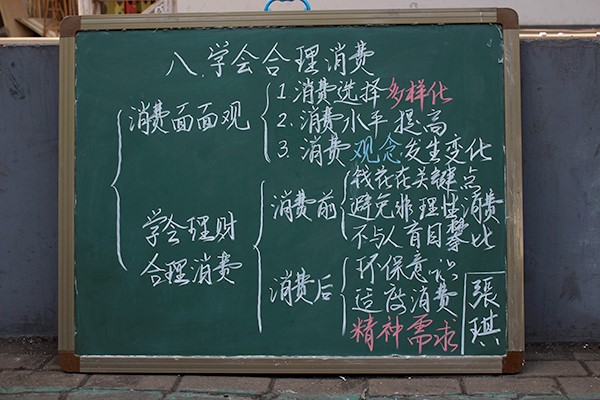 八.学会合理消费
消费面面观
1.消费选择多样化
2.消费水平提高
3.消费观念发生变化
学会理财
合理消费
消费前
钱花在关键点
避免非理性消费
不与人盲目攀比
消费后
环保意识
适度消费
精神需求
張琪